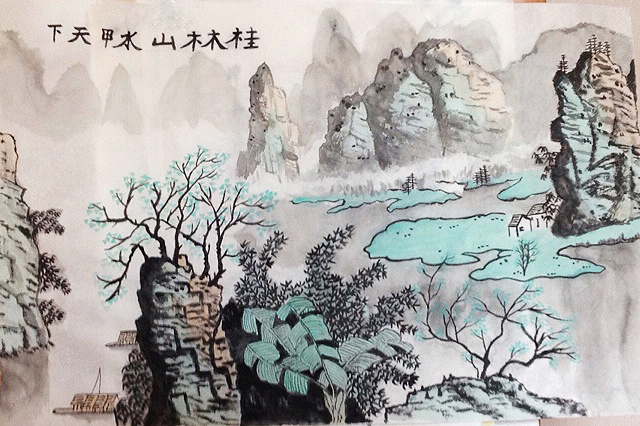 桂林山水甲天下